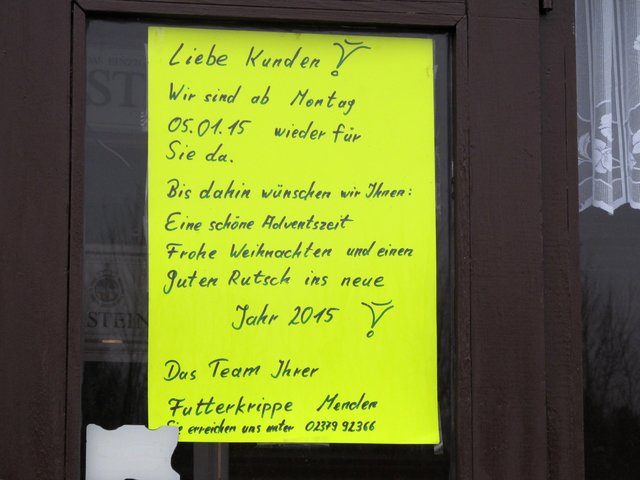 Liebe Kunden!
Wir sind ab Montag
05.01.15 wieder für
Sie da.
Bis dahin wünschen wir Ihnen:
Eine schöne Adventszeit
Frohe Weihnachten und einen
guten Rutsch ins neue
Jahr 2015!
Das Team Ihrer
Futterkrippe Menden
Sie erreichen uns unter 02379 92366
STEIN